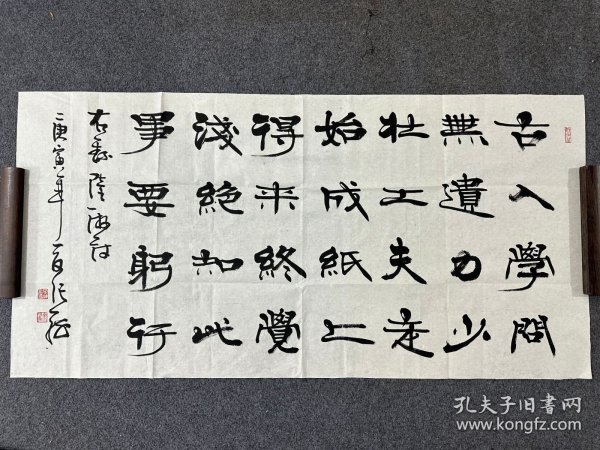 古人學問
無遺力少
壮工夫老
始成紙上
得来終覺
淺絕知此
事要躬行
右录陸游诗
庚寅年
孔夫子旧书网
www.kongfz.com